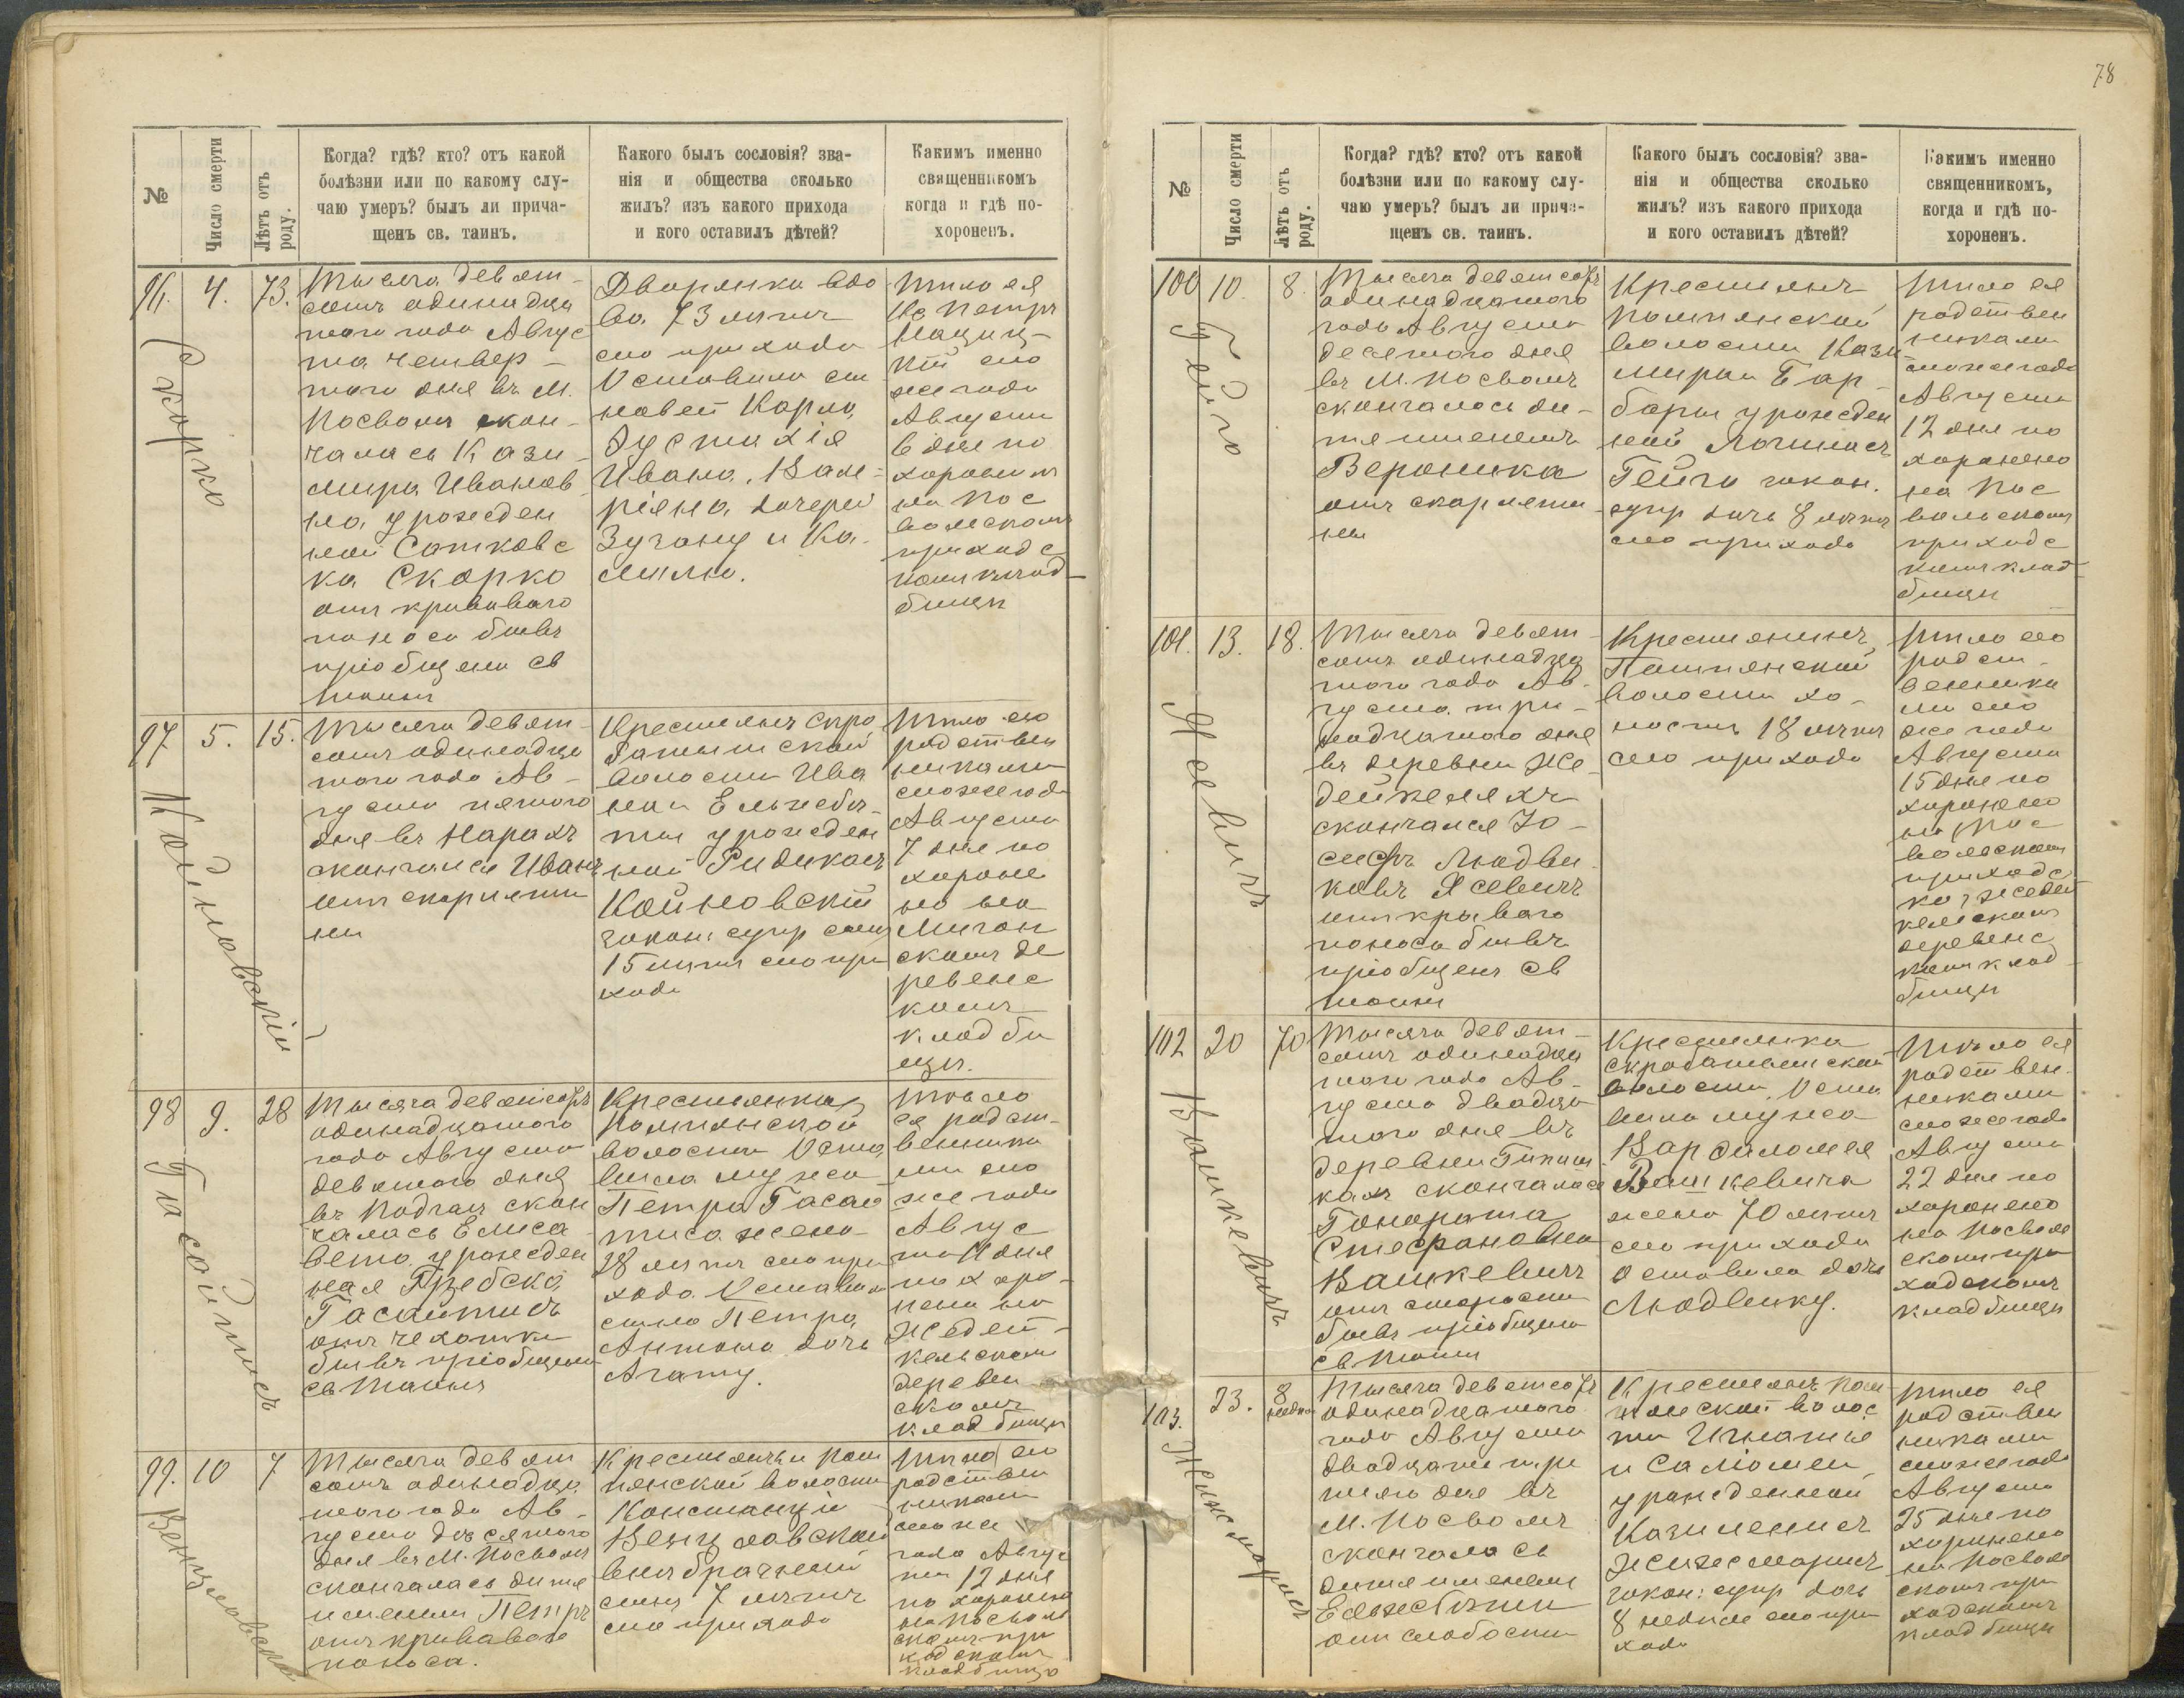 78
№
Число смерти
Лѣтъ отъ роду.
Когда? гдѣ? кто? отъ какой
болѣзни или по какому слу-
чаю умеръ? былъ ли прича-
щенъ св. таинъ.
Какого былъ сословія? зва-
нія и общества сколько
жилъ? изъ какого прихода
и кого оставилъ дѣтей?
Какимъ именно
священникомъ
когда и гдѣ по-
хороненъ.
96.
4.
73.
Скорко
Тысяча девят-
сотъ одинадца
таго года Авгус
та четвер-
таго дня въ М.
Посволѣ скон-
чалась Кази-
мира Иванов
на урожден
ная
Скорко
отъ криваваго
поноса бывъ
пріобщена св
таинъ
Дворянка вдо
ва 73 лѣтъ
сего прихода
Оставила сы
новей Карла,
Эустахія
Ивана, Вале-
ріяна дочерей
Зузану и Ка-
милю.
Тѣло ея
Кс Петръ
сего
же года
Августа
6 дня по
хоронилъ
на Пос
вольскомъ
приходс
комъ клад-
бищѣ
97
5.
15.
Койновскій
Тысяча девят-
сотъ одинадца
таго года Ав-
густа пятаго
дня въ Нарахъ
скончался Иванъ
отъ скарлати
ны
Крестьянъ Скро
ботышской
волости Ива
на и Ельжбѣ-
ты урожден
ной Ридикасъ
Койновскій
закон: супр сынъ
15 лѣтъ сего при
хода
Тѣло его
родствен
никами
сего же года
Августа
7 дня по
хороне
но на
скомъ де
ревенс
комъ
кладби
щѣ.
98
9.
28
Гасайтисъ
Тысяча девятсотъ
одинадцатаго
года Августа
девятаго дня
скон
чалась Елиса
вета урожден
ная
Гасайтисъ
отъ чехотки
бывъ пріобщена
св таинъ
Крестьянка
Помпянской
волости Оста
вила мужа
Петра Гасай
тиса жена
28 лѣтъ сего при
хода. Оставила
сына Петра,
Антона дочь
Агату.
Тѣло
ея родст-
венника
ми сего
же года
Авгус
та 11 дня
по хоро-
нено на
Жедей-
кельскомъ
деревен
скомъ
кладбищѣ
99.
10
7
Тысяча девят
сотъ одинадца
таго года Ав-
густа десятаго
дня въ М. Посволѣ
скончалась дитя
именемъ Петръ
отъ криваваго
поноса.
Крестьянки Пом
пянской волости
Констанціи
внѣбрачный
сынъ 7 лѣтъ
сего прихода
Тѣло его
родствен
никами
сего же
года Авгус
та 12 дня
по хоронено
на Посволь
скомъ при
ходскомъ
кладбищѣ
№
Число смерти
Лѣтъ отъ роду.
Когда? гдѣ? кто? отъ какой
болѣзни или по какому слу-
чаю умеръ? былъ ли прича-
щенъ св. таинъ.
Какого былъ сословія? зва-
нія и общества сколько
жилъ? изъ какого прихода
и кого оставилъ дѣтей?
Какимъ именно
священникомъ,
когда и гдѣ по-
хороненъ.
100
10.
8.
Гейго
Тысяча девятсотъ
одинадцатаго
года Августа
десятаго дня
въ М. Посволѣ
скончалось ди-
тя именемъ
Вероника
отъ скарлати
ны
Крестьянъ
Помпянской
волости Кази-
мира и Бар-
бары урожден
ной
Гейго закон.
супр дочь 8 лѣтъ
сего прихода
Тѣло ея
родствен
никами
сего же года
Августа
12 дня по
хоронено
на Пос
вольскомъ
приходс
комъ клад-
бищѣ
101.
13.
18.
Ясевичъ
Тысяча девят-
сотъ одинадца
таго года Ав-
густа три-
надцатаго дня
въ деревни Же-
дейкеляхъ
скончался Іо-
сифъ Людви-
ковъ Ясевичъ
отъ криваго
поноса бывъ
пріобщенъ св
таинъ
Крестьянинъ
Помпянской
волости хо-
лостъ 18 лѣтъ
сего прихода
Тѣло его
родст-
венника
ми сего
же года
Августа
15 дня по
хоронено
на Пос
вольскомъ
приходс
комъ жедей
кельскомъ
деревенс
комъ клад
бищѣ
102
20
70
Вашкевичъ
Тысяча девят-
сотъ одинадца
таго года Ав-
густа двадца
таго дня въ
деревни
скончалась
Гонората
Стефановна
Вашкевичъ
отъ старости
бывъ пріобщена
св таинъ
Крестьянка
Скроботышской
волости. Оста
вила мужа
Варфоломея
Вашкевича
жена 70 лѣтъ
сего прихода
оставила дочь
Людвику.
Тѣло ея
родствен
никами
сего же года
Августа
22 дня по
хоронено
на Посволь
скомъ при
ходскомъ
кладбищѣ
103.
23.
8
недѣль
Тысяча девятсотъ
одинадцатаго
года Августа
двадцать тре
тяго дня въ
М. Посволѣ
скончалась
дитя именемъ
Ельжбѣта
отъ слабости
Крестьянъ Пом
пянской волос
ти Игнатія
и Саломеи
урожденной
закон: супр дочь
8 недѣль сего при
хода
Тѣло ея
родствен
никами
сего же года
Августа
25 дня по
хоронено
на Посволь
скомъ при
ходскомъ
кладбищѣ